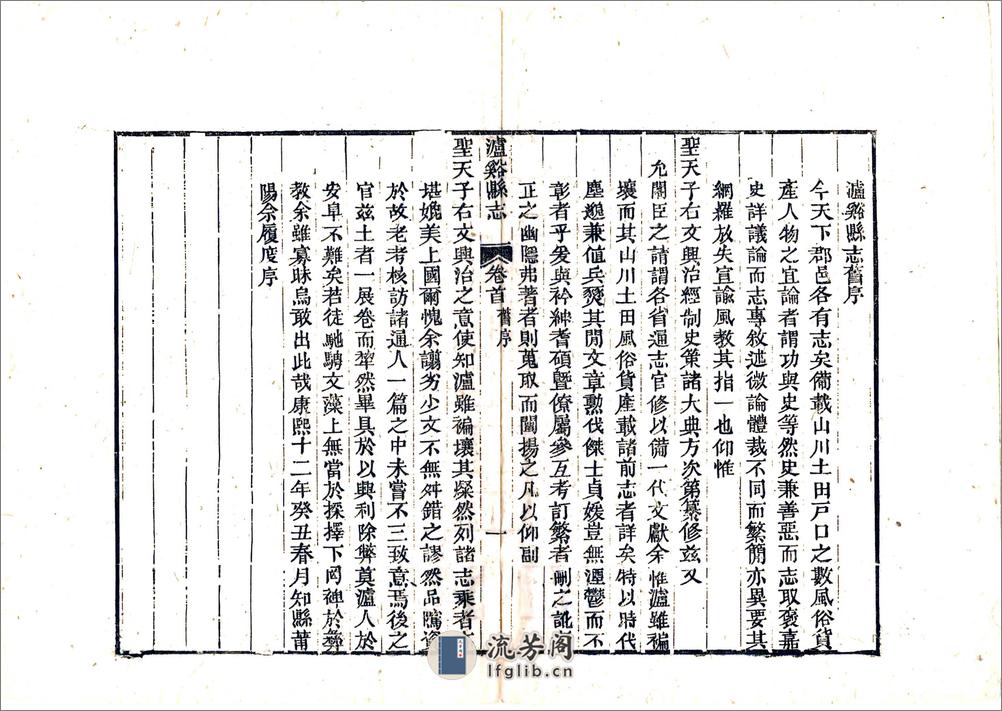 瀘谿縣志舊序
今天下郡邑各有志矣備載山川土田戸口之數風俗貨
產人物之宜論者謂功與史等然史兼善惡而志取褒嘉
史詳議論而志專敘述微論體裁不同而繁簡亦異要其
網羅放失宣諭風教其指一也仰惟
聖天子右文興治經制史策諸大典方次第纂修兹又
允閣臣之請謂各省通志官修以備一代文獻余惟瀘雖褊
壤而其山川土田風俗貨產載諸前志者詳矣特以時代
塵邈兼值兵燹其閒文章勲伐傑士貞媛豈無湮鬱而不
彰者乎爰與衿紳耆碩曁僚屬參互考訂繁者刪之訛者
正之幽隱弗著者則蒐取而闡揚之凡以仰副
瀘谿縣志 卷首 舊序 一
聖天子右文興治之意使知瀘雖褊壤其燦然列諸志乘者
堪媲美上國爾愧余謭劣少文不無舛錯之謬然品隲資
於故老考核訪諸通人一篇之中未嘗不三致意焉後之
官兹土者一展卷而犂然畢具於以興利除弊奠瀘人於
安阜不難矣若徒馳騁文藻上無當於採擇下罔裨於彝
教余雖寡昧烏敢出此哉康熙十二年癸丑春月知縣莆
陽余履度序
流芳阁
lfglib.cn